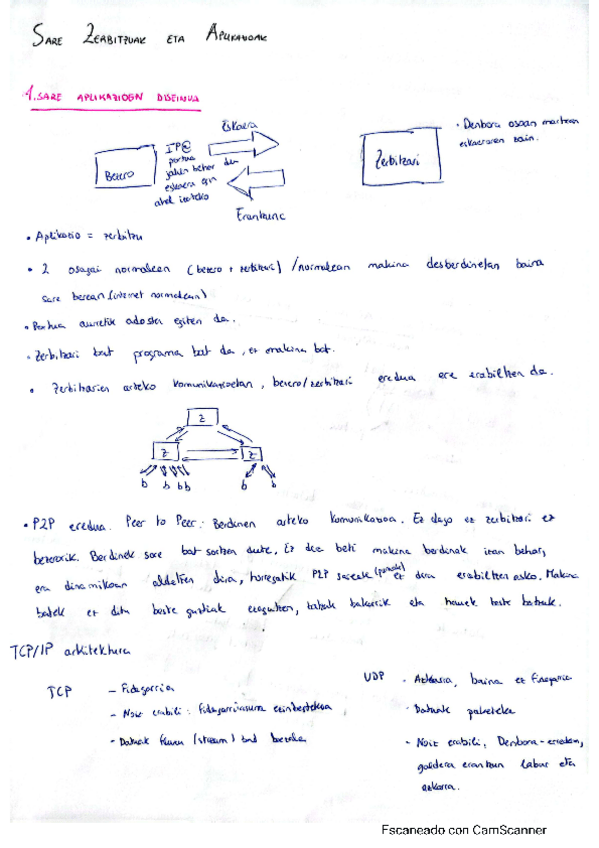 SARE ZERBITZUAK ETA APLIKAZIOAK
1. SARE APLIKAZIOEN DISEINUA
Eskaera
IP@
portua
jakin behar du
eskaera egin
ahal izateko
Bezero
Zerbitzari
• Denbora osoan martxan
eskaeraren zain.
Erantzuna
• Aplikazio = zerbitzu
• 2 osagai normalean (bezero + zerbitzari) / normalean makina desberdinetan baina
sare berean (internet normalean)
• Portua aurretik adostu egiten da.
• Zerbitzari bat programa bat da, ez makina bat.
• Zerbitzarien arteko komunikazioetan, bezero/zerbitzari eredua ere erabiltzen da.
Z
Z Z
b b b b b b
• P2P eredua. Peer to Peer: Berdinen arteko komunikazioa. Ez dago ez zerbitzari ez
bezerorik. Berdinek sare bat sortzen dute. Ez dira beti makina berdinak izan behar,
era dinamikoan aldatzen dira, horregatik P2P sareak (puruak) ez dira erabiltzen asko. Makina
batek ez ditu beste guztiak ezagutzen, batzuk bakarrik eta hauek beste batzuk.
TCP/IP arkitektura
TCP
– Fidagarria
– Noiz erabili: Fidagarritasuna ezinbestekoa
• Datuak fluxu (stream) bat bezala
UDP
• Azkarra, baina ez fidagarria
• Datuak paketeka
• Noiz erabili, Denbora-errealean,
galdera erantzun labur eta
azkarra.
Escaneado con CamScanner